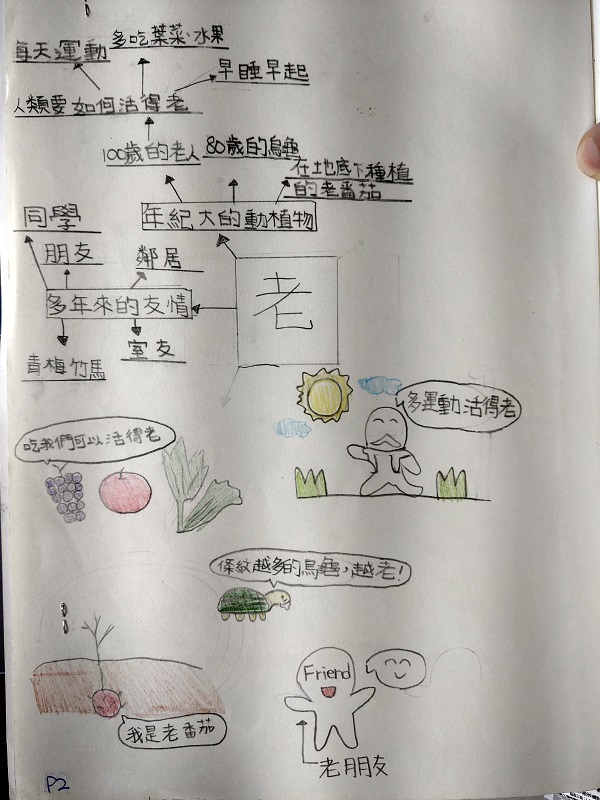 每天運動
多吃葉菜、水果
早睡早起
人類要如何活得老
100歲的老人
80歲的烏龜
在地底下種植
的老番茄
年紀大的動植物
同學
朋友
鄰居
多年來的友情
老
青梅竹馬
室友
多運動活得老
吃我們可以活得老
條紋越多的烏龜，越老！
Friend
我是老番茄
老朋友
P2